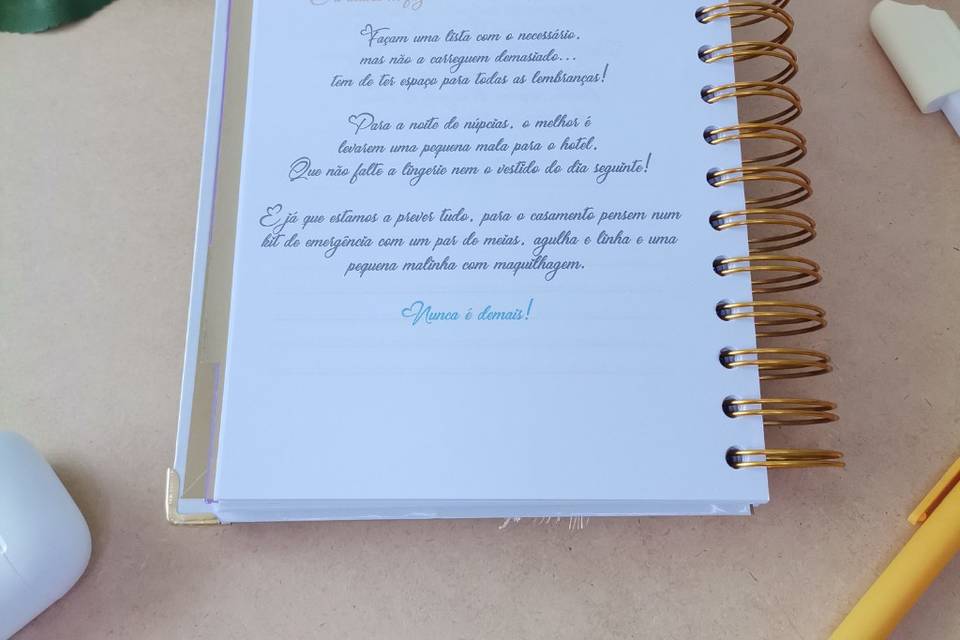 Façam uma lista com o necessário,
mas não a carreguem demasiado...
tem de ter espaço para todas as lembranças!
Para a noite de núpcias, o melhor é
levarem uma pequena mala para o hotel.
Que não falte a lingerie nem o vestido do dia seguinte!
E já que estamos a prever tudo, para o casamento pensem num
kit de emergência com um par de meias, agulha e linha e uma
pequena malinha com maquilhagem.
Nunca é demais!